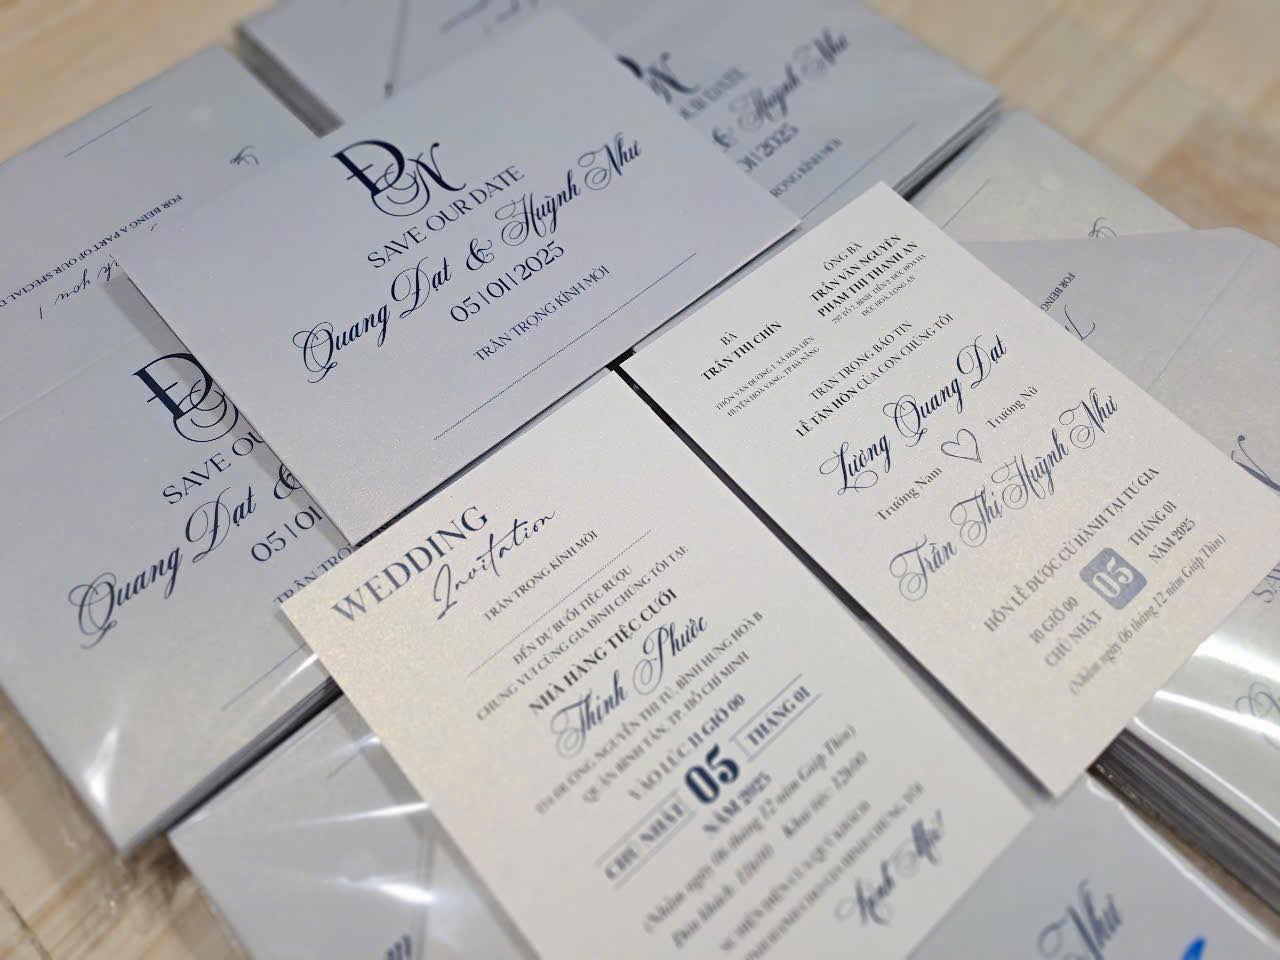 FOR BEING A PART OF OUR SPECIAL D
ĐN
SAVE OUR DATE
Quang Đạt & Huỳnh Như
05|01|2025
TRÂN TRỌNG KÍNH MỜI
N
Huỳnh Như
2025
TRỌNG KÍNH MỜI
ĐN
SAVE OU
Quang Đạt &
05|01
TRÂN TRỌ
WEDDING
Invitation
TRÂN TRỌNG KÍNH MỜI
ĐẾN DỰ BUỔI TIỆC RƯỢU
CHUNG VUI CÙNG GIA ĐÌNH CHÚNG TÔI TẠI
NHÀ HÀNG TIỆC CƯỚI
Thịnh Phước
NGUYỄN THỊ TÚ, BÌNH HƯNG HOÀ B
QUẬN BÌNH TÂN, TP. HỒ CHÍ MINH
VÀO LÚC 11 GIỜ 00
CHỦ NHẬT 05 THÁNG 01
NĂM 2025
(Nhằm ngày 06 tháng 12 năm Giáp Thìn)
Đón khách: 11h00 Khai tiệc: 12h00
SỰ HIỆN DIỆN CỦA QUÝ KHÁCH
Kính Mời!
BÀ
TRẦN THỊ CHÍN
THÔN VÂN DƯƠNG 1, XÃ HOÀ LIÊN
HUYỆN HOÀ VANG, TP ĐÀ NẴNG
ÔNG BÀ
TRẦN VĂN NGUYÊN
PHẠM THỊ THANH AN
ĐỨC HOÀ, LONG AN
TRÂN TRỌNG BÁO TIN
LỄ TÂN HÔN CỦA CON CHÚNG TÔI
Lương Quang Đạt
Trưởng Nam
Trưởng Nữ
Trần Thị Huỳnh Như
HÔN LỄ ĐƯỢC CỬ HÀNH TẠI TƯ GIA
10 GIỜ 00
CHỦ NHẬT
05
THÁNG 01
NĂM 2025
(Nhằm ngày 06 tháng 12 năm Giáp Thìn)
FOR BEING
Như